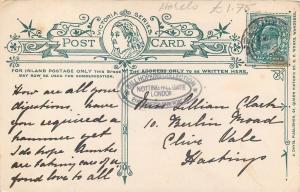 £1.75
VICTORIA SERIES
POST CARD
FOR INLAND POSTAGE ONLY THIS SPACE
THE ADDRESS ONLY TO BE WRITTEN HERE.
NOTTING HILL GATE
LONDON
How are all your
digestions. have
you required a
hammer yet
I do hope
are taking care of u
fond love to all
Miss Lillian Clark
10 Berlin Road
Clive Vale
Hastings